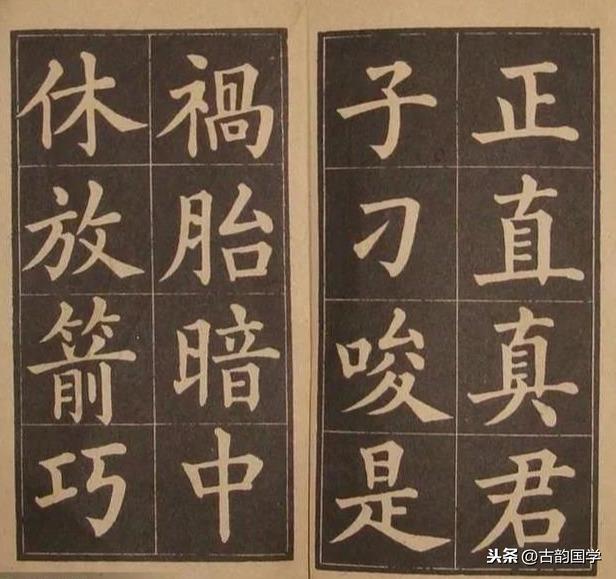 正直真君
子刁唆是
禍胎暗中
休放箭巧
头条 @古韵国学